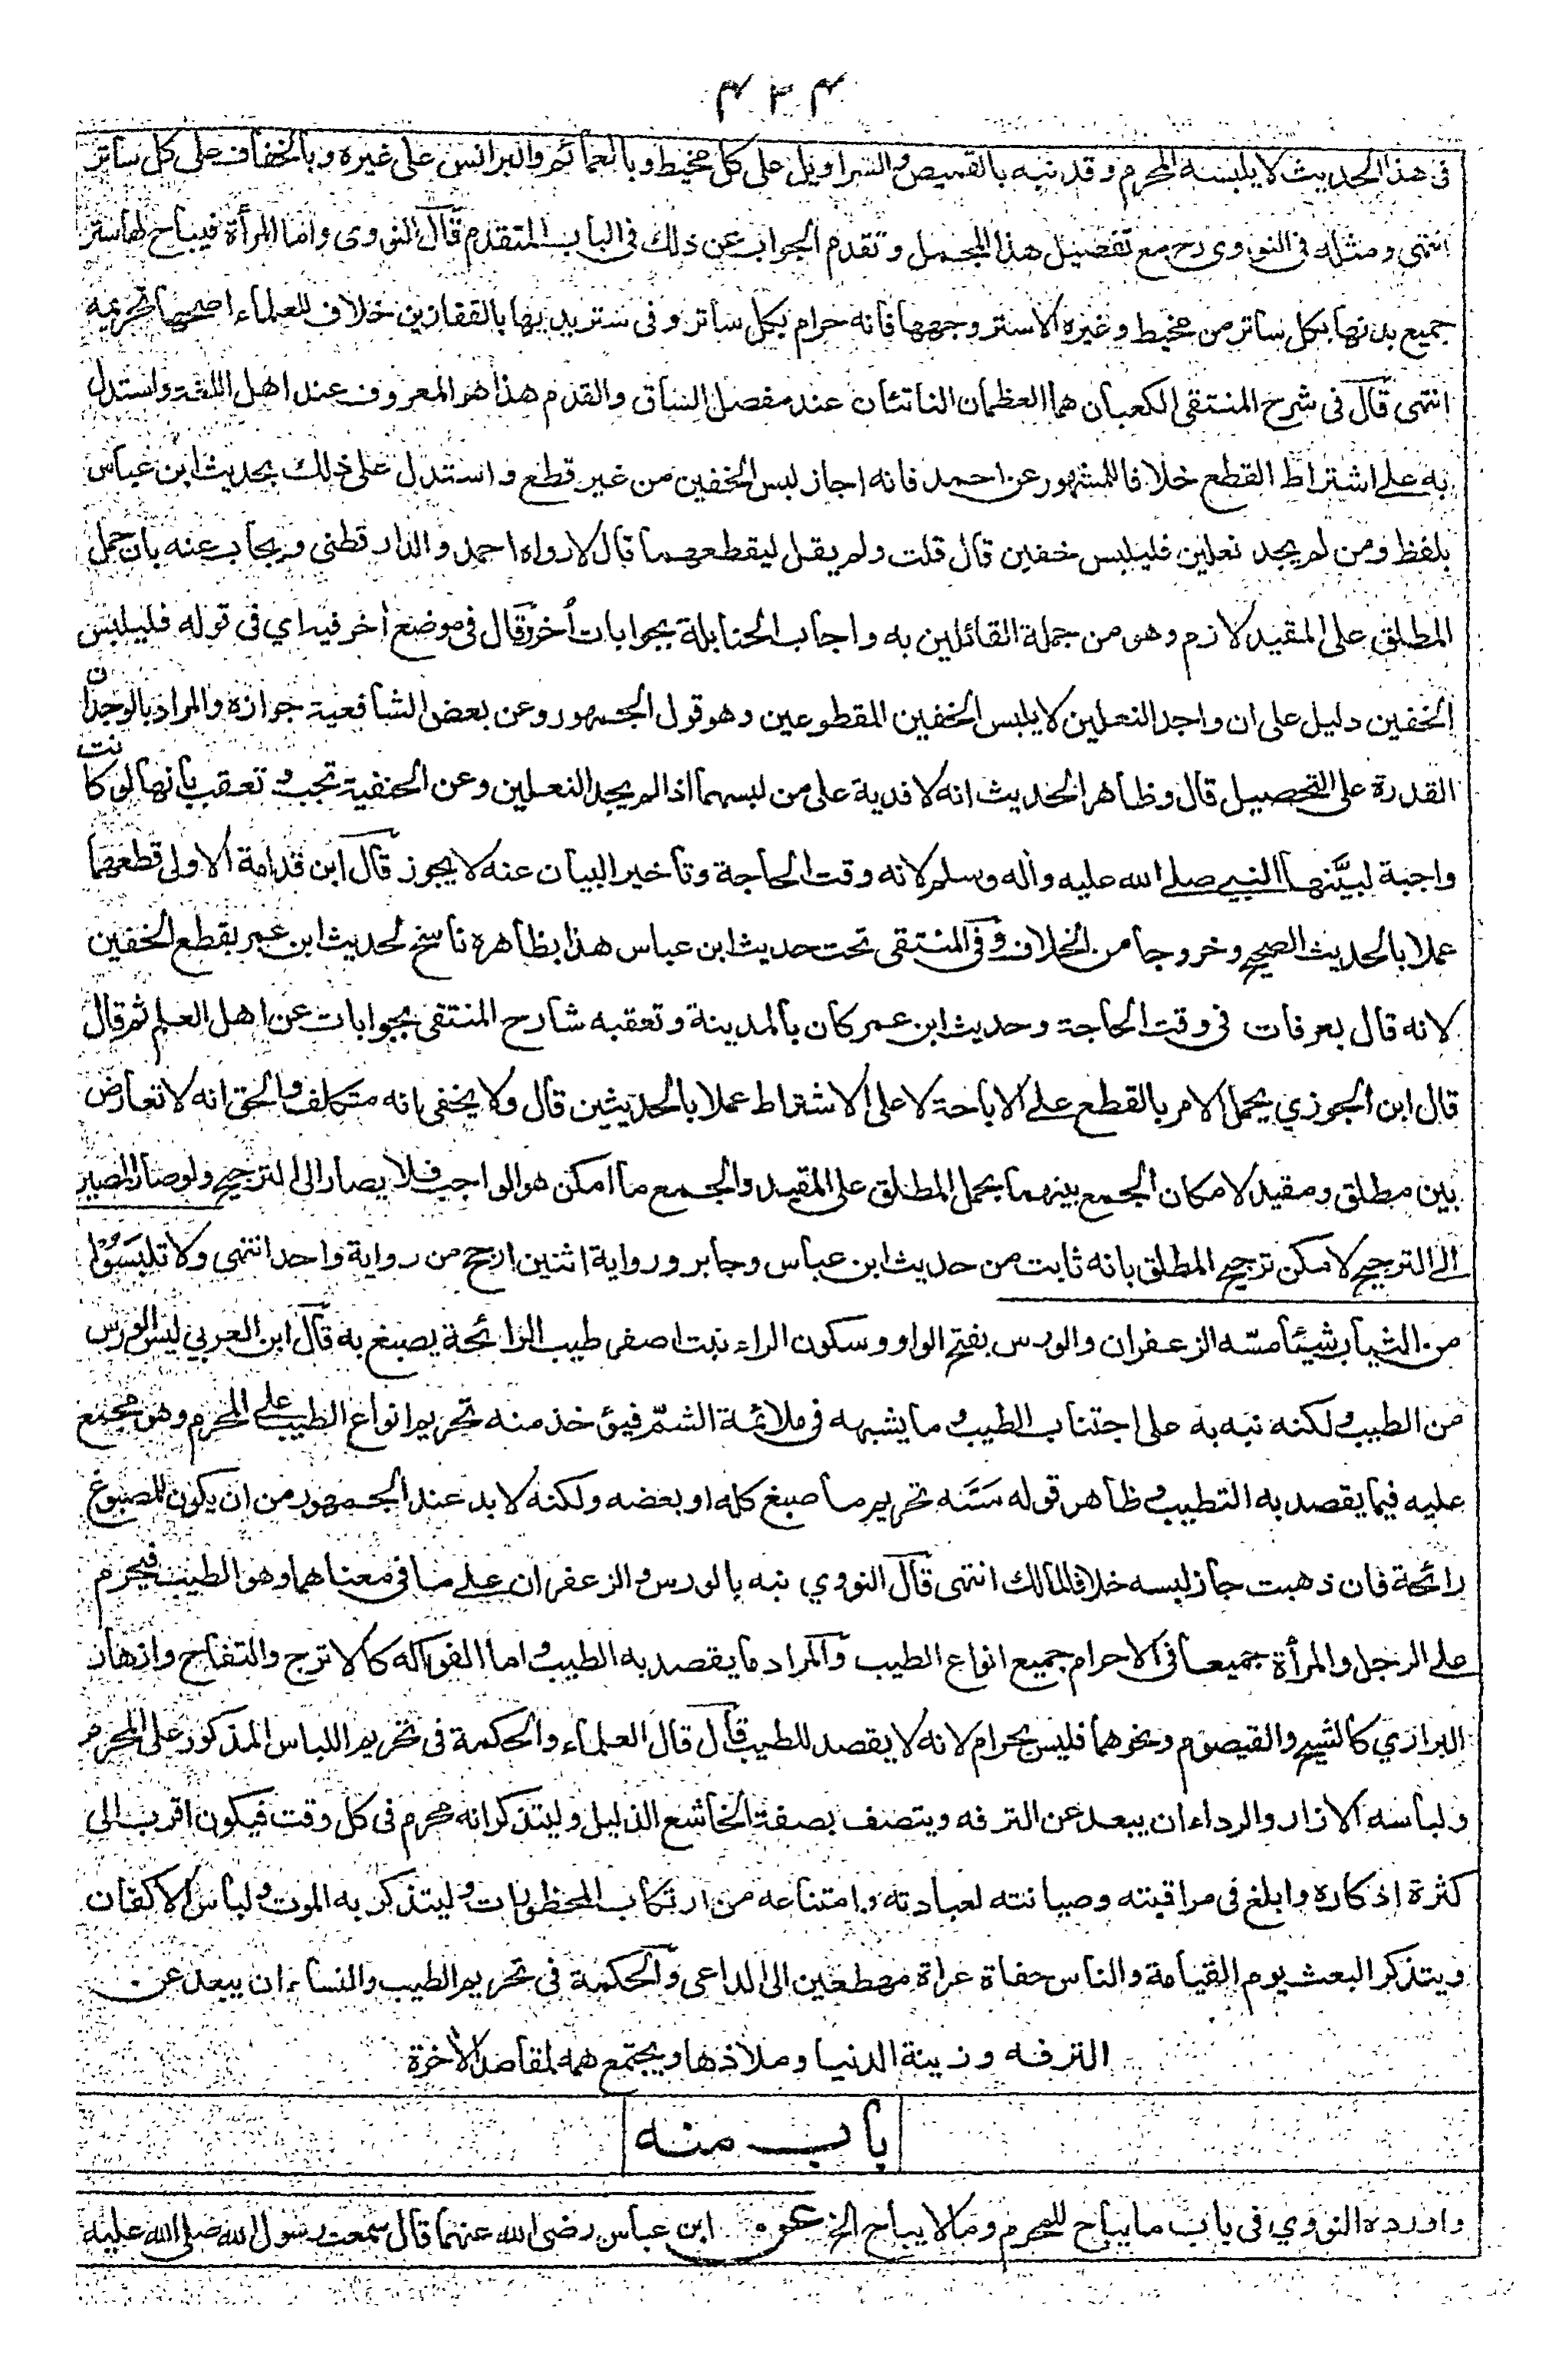 ٤٢٤
فى هذا الحديث لا يلبسه المحرم وقد نبه بالقميص والسراويل على كل مخيط وبالعمائم والبرانس على غيره وبالخفاف على كل ساتر
انتهى ومثله فى النووى رح مع تفصيل هذا المجمل وتقدم الجواب عن ذلك فى الباب المتقدم قال النووى واما المرأة فيباح لها ستر
جميع بدنها بكل ساتر من مخيط وغيره الا ستر وجهها فانه حرام بكل ساتر وفى ستر يديها بالقفازين خلاف للعلماء اصحها تحريمه
انتهى قال فى شرح المنتقى الكعبان هما العظمان الناتئان عند مفصل الساق والقدم هذا هو المعروف عند اهل اللغة واستدل
به على اشتراط القطع خلافا للمشهور عن احمد فانه اجاز لبس الخفين من غير قطع واستدل على ذلك بحديث ابن عباس
بلفظ ومن لم يجد نعلين فليلبس خفين قال قلت ولم يقل ليقطعهما قال لا رواه احمد والدارقطنى ويجاب عنه بان حمل
المطلق على المقيد لازم وهو من جملة القائلين به واجاب الحنابلة بجوابات أخر وقال فى موضع أخر فيه اي فى قوله فليلبس
الخفين دليل على ان واجد النعلين لا يلبس الخفين المقطوعين وهو قول الجمهور وعن بعض الشافعية جوازه والمراد بالوجدان
القدرة على التحصيل قال وظاهر الحديث انه لا فدية على من لبسهما اذا لم يجد النعلين وعن الحنفية تجب وتعقب بانها لو كانت
واجبة لبيَّنها النبي صلى الله عليه وأله وسلم لانه وقت الحاجة وتأخير البيان عنه لا يجوز قال ابن قدامة الاولى قطعهما
عملا بالحديث الصحيح وخروجا من الخلاف وفى المنتقى تحت حديث ابن عباس هذا بظاهره ناسخ لحديث ابن عمر بقطع الخفين
لانه قال بعرفات فى وقت الحاجة وحديث ابن عمر كان بالمدينة وتعقبه شارح المنتقى بجوابات عن اهل العلم ثم قال
قال ابن الجوزي يحمل الامر بالقطع على الاباحة لا على الاشتراط عملا بالحديثين قال ولا يخفى انه متكلف والحق انه لا تعارض
بين مطلق ومقيد لامكان الجمع بينهما بحمل المطلق على المقيد والجمع ما امكن هو الواجب فلا يصار الى الترجيح ولو صار المصير
الى الترجيح لامكن ترجيح المطلق بانه ثابت من حديث ابن عباس وجابر ورواية اثنين ارجح من رواية واحد انتهى ولا تلبَسُوْا
من الثياب شيئا مسّه الزعفران والورس بفتح الواو وسكون الراء نبت اصفر طيب الرائحة يصبغ به قال ابن العربي ليس الورس
من الطيب ولكنه نبه به على اجتناب الطيب وما يشبهه فى ملائمة الشمّ فيؤخذ منه تحريم انواع الطيب على المحرم وهو مجمع
عليه فيما يقصد به التطيب وظاهر قوله مَسَّه تحريم ما صبغ كله او بعضه ولكنه لا بد عند الجمهور من ان يكون للمصبوغ
رائحة فان ذهبت جاز لبسه خلافا لمالك انتهى قال النووي نبه بالورس والزعفران على ما فى معناهما وهو الطيب فيحرم
على الرجل والمرأة جميعا فى الاحرام جميع انواع الطيب والمراد ما يقصد به الطيب واما الفواكه كالاترج والتفاح وازهار
البراري كالشيح والقيصوم ونحوهما فليس بحرام لانه لا يقصد للطيب قال قال العلماء والحكمة فى تحريم اللباس المذكور على المحرم
ولباسه الازار والرداء ان يبعد عن الترفه ويتصف بصفة الخاشع الذليل وليتذكر انه محرم فى كل وقت فيكون اقرب الى
كثرة اذكاره وابلغ فى مراقبته وصيانته لعبادته وامتناعه من ارتكاب المحظورات وليتذكر به الموت ولباس الاكفان
ويتذكر البعث يوم القيامة والناس حفاة عراة مهطعين الى الداعى والحكمة فى تحريم الطيب والنساء ان يبعد عن
الترفه وزينة الدنيا وملاذها ويجتمع همه لمقاصد الأخرة
باب منه
واورده النووي فى باب ما يباح للمحرم وما لا يباح الخ عن ابن عباس رضى الله عنهما قال سمعت رسول الله صلى الله عليه